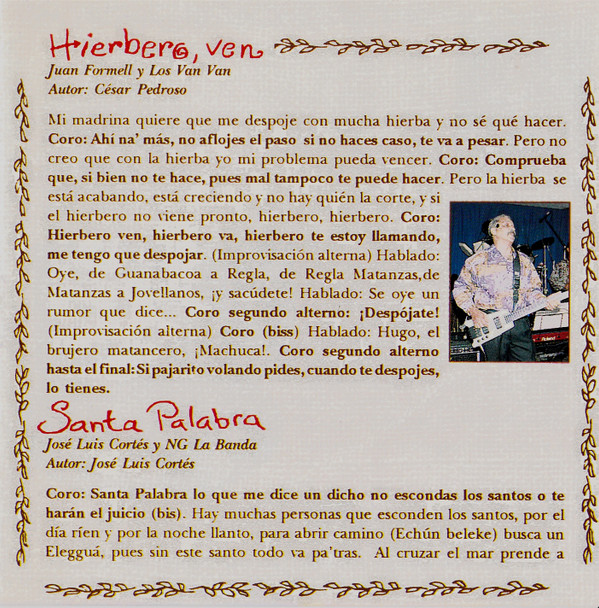 Hierbero, ven
Juan Formell y Los Van Van
Autor: César Pedroso
Mi madrina quiere que me despoje con mucha hierba y no sé qué hacer.
Coro: Ahí na' más, no aflojes el paso si no haces caso, te va a pesar. Pero no
creo que con la hierba yo mi problema pueda vencer. Coro: Comprueba
que, si bien no te hace, pues mal tampoco te puede hacer. Pero la hierba se
está acabando, está creciendo y no hay quién la corte, y si
el hierbero no viene pronto, hierbero, hierbero. Coro:
Hierbero ven, hierbero va, hierbero te estoy llamando,
me tengo que despojar. (Improvisación alterna) Hablado:
Oye, de Guanabacoa a Regla, de Regla Matanzas,de
Matanzas a Jovellanos, ¡y sacúdete! Hablado: Se oye un
rumor que dice... Coro segundo alterno: ¡Despójate!
(Improvisación alterna) Coro (biss) Hablado: Hugo, el
brujero matancero, ¡Machuca!. Coro segundo alterno
hasta el final: Si pajarito volando pides, cuando te despojes,
lo tienes.
Roland
Santa Palabra
José Luis Cortés y NG La Banda
Autor: José Luis Cortés
Coro: Santa Palabra lo que me dice un dicho no escondas los santos o te
harán el juicio (bis). Hay muchas personas que esconden los santos, por el
día ríen y por la noche llanto, para abrir camino (Echún beleke) busca un
Elegguá, pues sin este santo todo va pa'tras. Al cruzar el mar prende a